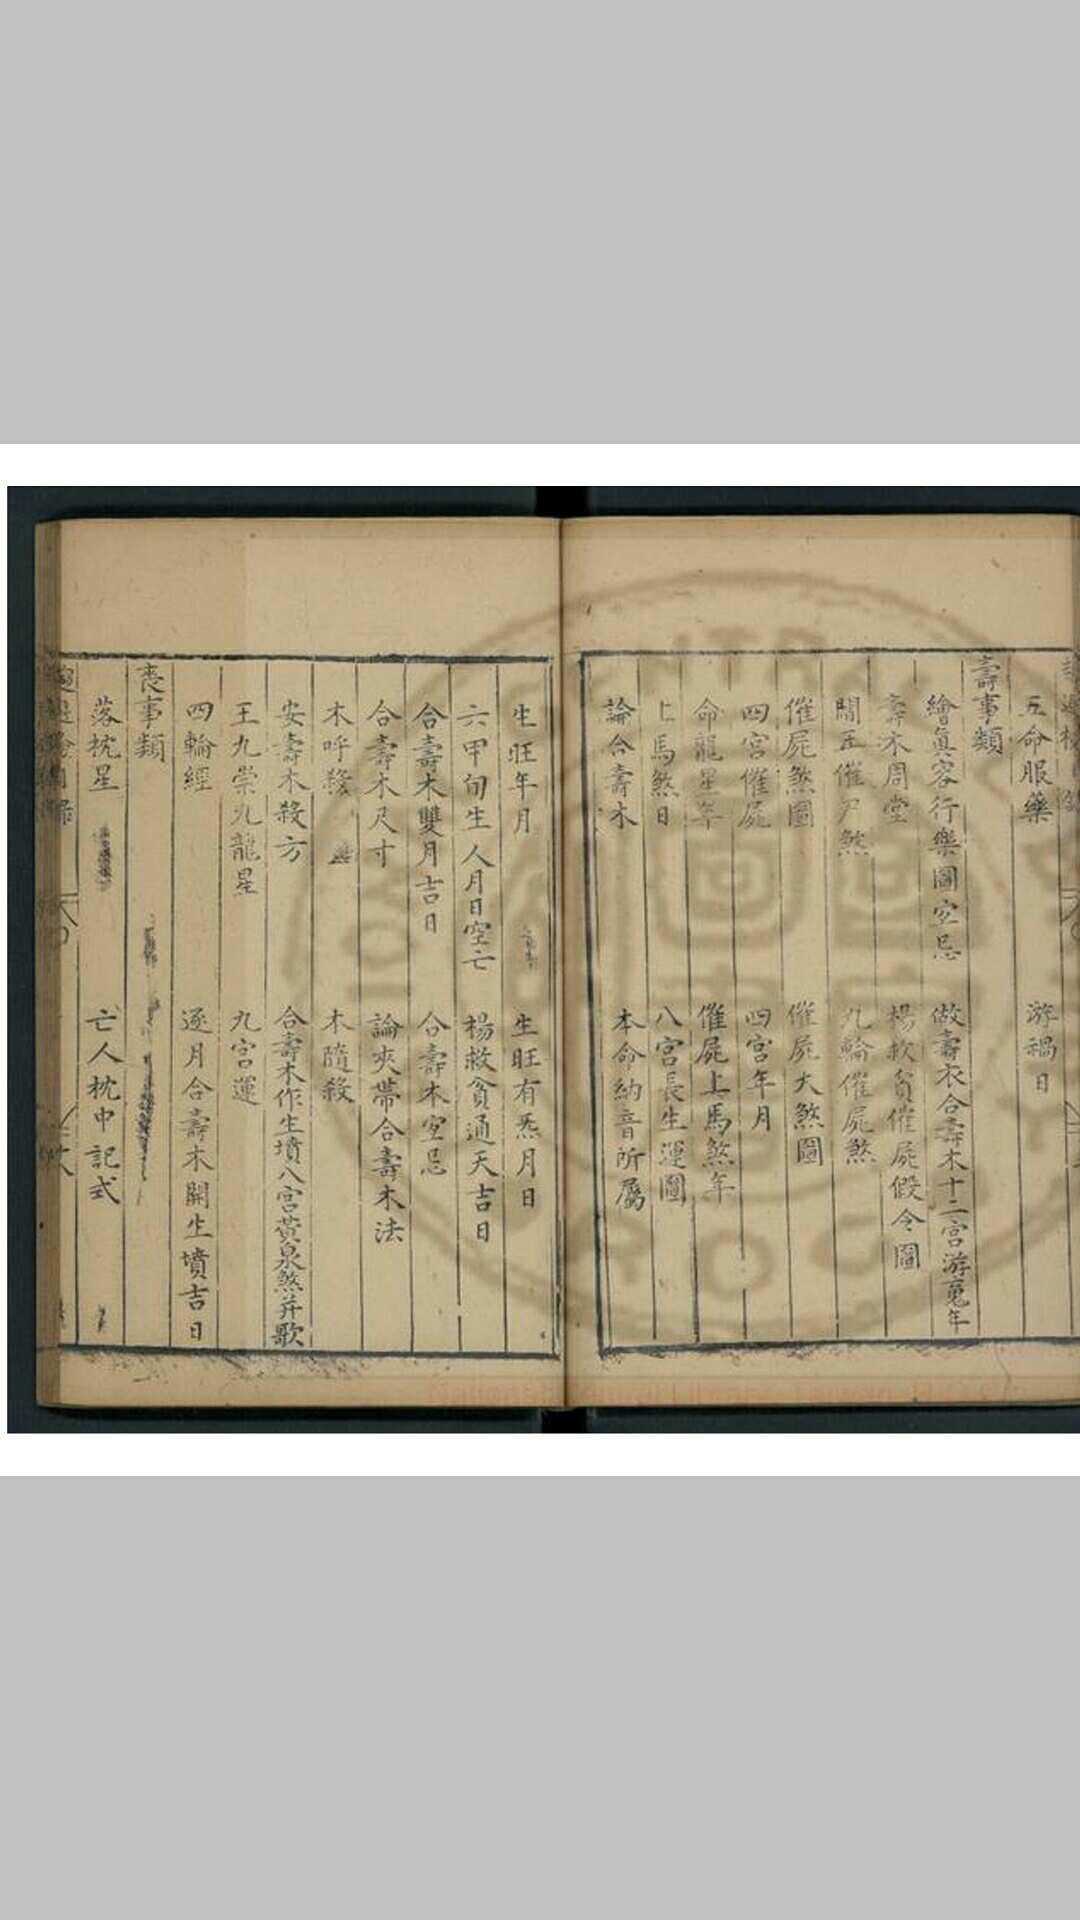 五命服藥　游禍日
壽事類
繪眞容行樂圖宜忌　做壽衣合壽木十二宮游冤年
壽木周堂　楊救貧催屍假令圖
閗五催尸煞　九輪催屍煞
催屍煞圖　催屍大煞圖
四宮催屍　四宮年月
命龍星年　催屍上馬煞年
上馬煞日　八宮長生運圖
論合壽木　本命納音所屬
生旺年月　生旺有炁月日
六甲旬生人月日空亡　楊救貧通天吉日
合壽木雙月吉日　合壽木宜忌
合壽木尺寸　論夾帶合壽木法
木呼殺　木隨殺
安壽木殺方　合壽木作生墳八宮黃泉煞并歌
王九崇九龍星　九宮運
四輪經　逐月合壽木開生墳吉日
喪事類
落枕星　亡人枕中記式